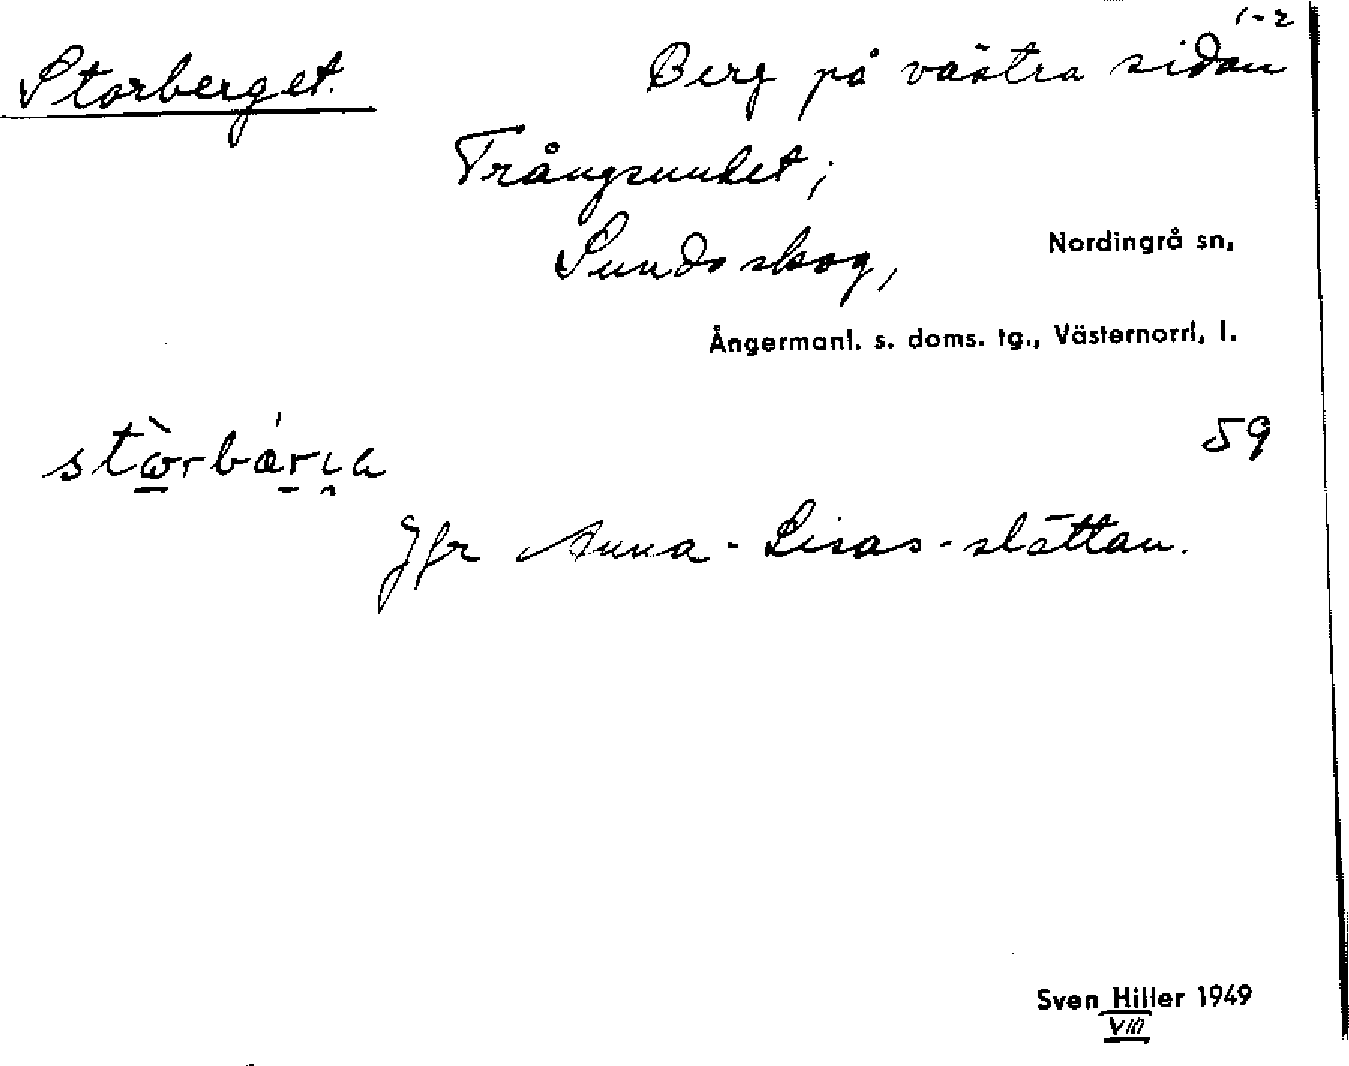 1-2
Storberget. Berg på västra sidan
Trångsundet;
Sundsskog, Nordingrå sn,
Ångermanl. s. doms. tg., Västernorrl. l.
59
Jfr Anna-Lisas-slåttan.
Sven Hiller 1949
VIII